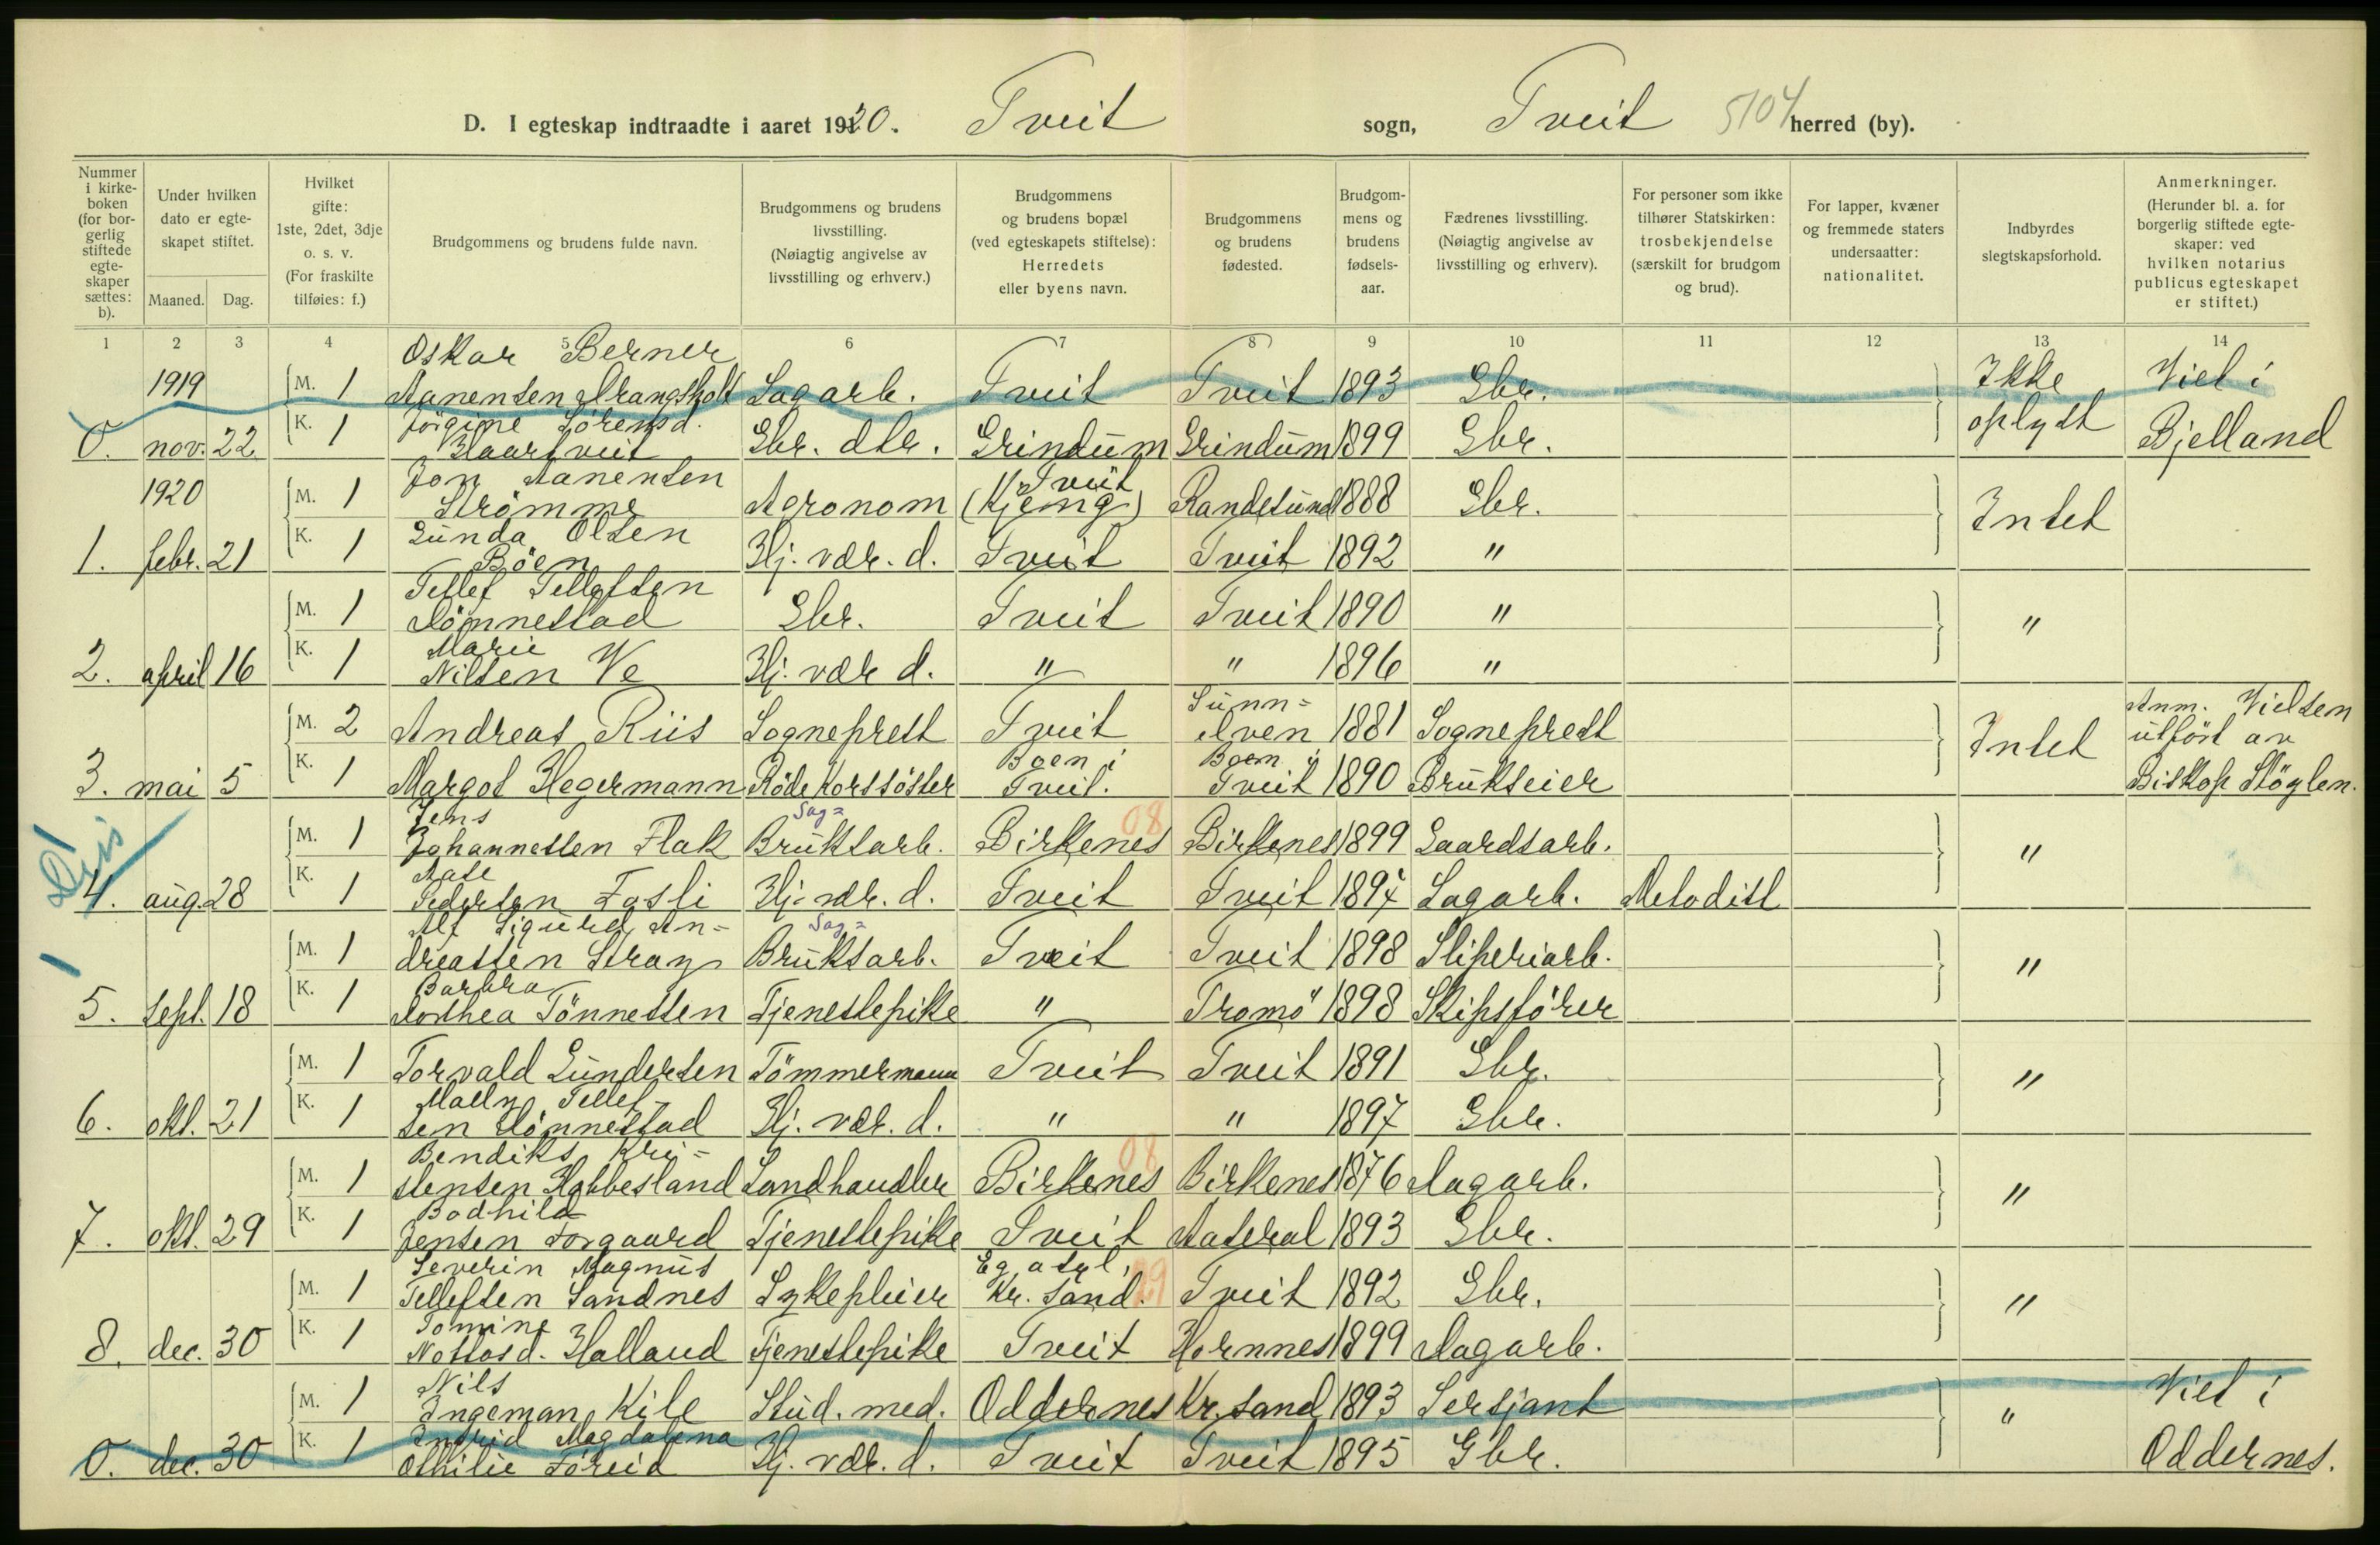 D. I egteskap indtraadte i aaret 1920. Tveit sogn, Tveit 5104 herred (by).
Nummer i kirke-boken (for bor-gerlig stiftede egte-skaper sættes: b).
Under hvilken dato er egte-skapet stiftet.
Maaned. Dag.
Hvilket gifte: 1ste, 2det, 3dje o. s. v. (For fraskilte tilføies: f.)
Brudgommens og brudens fulde navn.
Brudgommens og brudens livsstilling. (Nøiagtig angivelse av livsstilling og erhverv.)
Brudgommens og brudens bopæl (ved egteskapets stiftelse): Herredets eller byens navn.
Brudgommens og brudens fødested.
Brudgom-mens og brudens fødsels-aar.
Fædrenes livsstilling. (Nøiagtig angivelse av livsstilling og erhverv).
For personer som ikke tilhører Statskirken: trosbekjendelse (særskilt for brudgom og brud).
For lapper, kvæner og fremmede staters undersaatter: nationalitet.
Indbyrdes slegtskapsforhold.
Anmerkninger. (Herunder bl. a. for borgerlig stiftede egte-skaper: ved hvilken notarius publicus egteskapet er stiftet.)
1 2 3 4 5 6 7 8 9 10 11 12 13 14
Oskar Berner
1919 M. 1 Aanensen Drangsholt Sagarb. Tveit Tveit 1893 Gbr. Ikke Viet i
Jörgine Sörensd.
0. nov. 22 K. 1 Haartveit Gbr. dtr. Grindum Grindum 1899 Gbr. oplyst Bjelland
Jon Aanensen Tveit
1920 M. 1 Strömme Agronom (Kjemg) Randesund 1888 Gbr. Intet
Gunda Olsen
1. febr. 21 K. 1 Böen Hj. vær. d. Tveit Tveit 1892 "
Tellef Tellefsen
M. 1 Dönnestad Gbr. Tveit Tveit 1890 " "
Marie
2. april 16 K. 1 Nilsen Ve Hj. vær d. " " 1896 "
Sunn= Anm. Vielsen
M. 2 Andreas Riis Sogneprest Tveit elven 1881 Sogneprest Intet utført av
Boen i Boen i
3. mai 5 K. 1 Margot Hegermann Röde Korssöster Tveit. Tveit 1890 Brukseier Biskop Stöylen.
Jens Sag= 08
M. 1 Johannessen Flak Bruksarb. Birkenes Birkenes 1899 Gaardsarb. "
1 Dris
Aase
4. aug. 28 K. 1 Pedersen Fosli Hj. vær. d. Tveit Tveit 1897 Sagarb. Metodist
Alf Sigurd An= Sag=
1 M. 1 dreassen Stray Bruksarb. Tveit Tveit 1898 Sliperiarb. "
Barbra
5. sept. 18 K. 1 Dorthea Tönnessen Tjenestepike " Tromö 1898 Skipsförer
M. 1 Torvald Gundersen Tömmermann Tveit Tveit 1891 Gbr. "
Mally Tellef-
6. okt. 21 K. 1 sen Dönnestad Hj. vær. d. " " 1897 Gbr.
Bendiks Kri= 08
M. 1 stensen Habbesland Landhandler Birkenes Birkenes 1876 Dagarb. "
Bodhild
7. okt. 29 K. 1 Jensen Forgaard Tjenestepike Tveit Aaseral 1893 Gbr.
Severin Magnus Eg asyl, 29
M. 1 Tellefsen Sandnes Sykepleier Kr. sand. Tveit 1892 Gbr. "
Tomine
8. dec. 30 K. 1 Notlosd. Holland Tjenestepike Tveit Hornnes 1899 Dagarb.
Nils
M. 1 Ingeman Kile Stud. med. Oddernes Kr. sand 1893 Sersjant " Viet i
Ingrid Magdalena
0. dec. 30 K. 1 Othilie Föreid Hj. vær. d. Tveit Tveit 1895 Gbr. Oddernes.